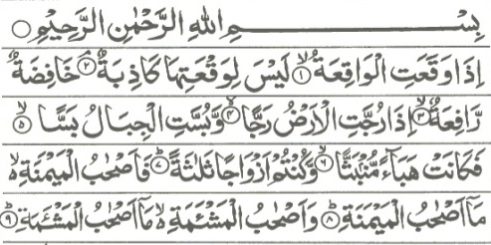 بِسْمِ اللهِ الرَّحْمٰنِ الرَّحِيْمِ ○
اِذَا وَقَعَتِ الْوَاقِعَةُ ۙ﴿۱﴾ لَيْسَ لِوَقْعَتِهَا كَاذِبَةٌ ۘ﴿۲﴾ خَافِضَةٌ
رَّافِعَةٌ ۙ﴿۳﴾ اِذَا رُجَّتِ الْاَرْضُ رَجًّا ۙ﴿۴﴾ وَّبُسَّتِ الْجِبَالُ بَسًّا ۙ﴿۵﴾
فَكَانَتْ هَبَآءً مُّنْۢبَثًّا ۙ﴿۶﴾ وَّكُنْتُمْ اَزْوَاجًا ثَلٰثَةً ؕ﴿۷﴾ فَاَصْحٰبُ الْمَيْمَنَةِ ۙ
مَاۤ اَصْحٰبُ الْمَيْمَنَةِ ؕ﴿۸﴾ وَاَصْحٰبُ الْمَشْـَٔمَةِ ۙ مَاۤ اَصْحٰبُ الْمَشْـَٔمَةِ ؕ﴿۹﴾